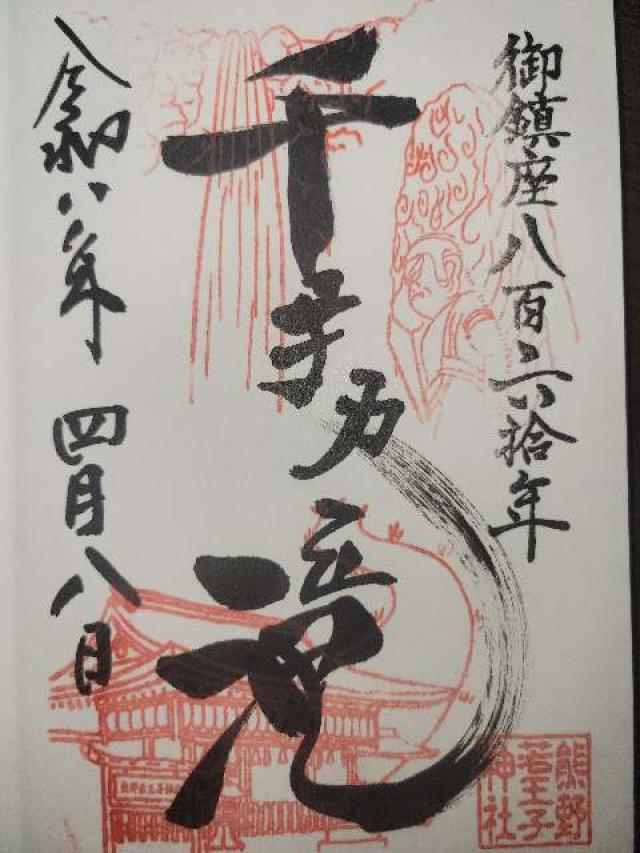 御鎮座八百六拾年
千手乃滝
令和八年四月八日
熊野
若王子
神社